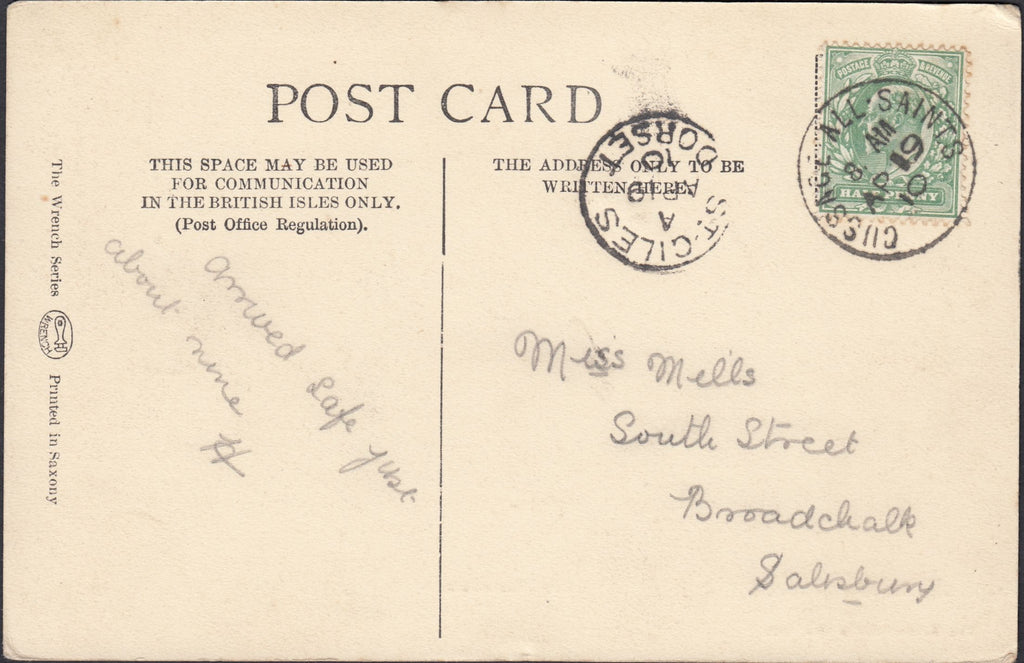 POST CARD
THIS SPACE MAY BE USED
FOR COMMUNICATION
IN THE BRITISH ISLES ONLY.
(Post Office Regulation).
THE ADDRESS ONLY TO BE
WRITTEN HERE.
POSTAGE & REVENUE
HALF PENNY
GUSSAGE ALL SAINTS
AM
8
19
AP
10
ST. GILES
DORSET
A
AP 19
10
The Wrench Series
WRENCH
Printed in Saxony
arrived safe just
about nine
H
Miss Mells
South Street
Broadchalk
Salisbury